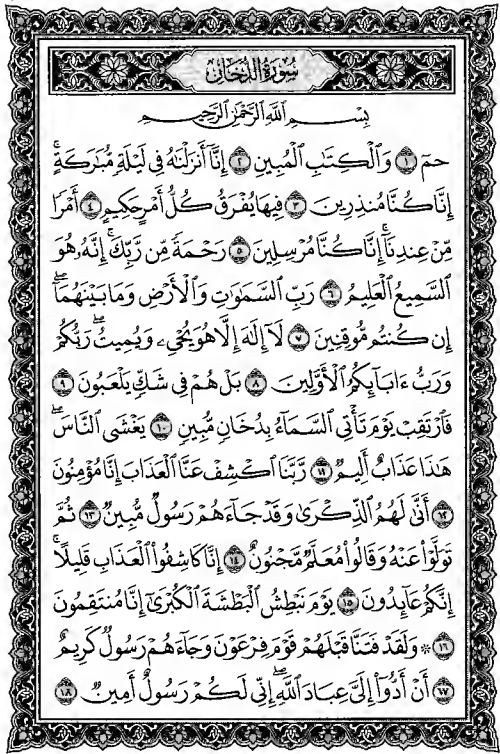 سُورَةُ الدُّخَانِ
بِسْمِ اللَّهِ الرَّحْمَٰنِ الرَّحِيمِ
حمٓ ١ وَٱلْكِتَٰبِ ٱلْمُبِينِ ٢ إِنَّآ أَنزَلْنَٰهُ فِى لَيْلَةٍ مُّبَٰرَكَةٍ ۚ
إِنَّا كُنَّا مُنذِرِينَ ٣ فِيهَا يُفْرَقُ كُلُّ أَمْرٍ حَكِيمٍ ٤ أَمْرًا
مِّنْ عِندِنَآ ۚ إِنَّا كُنَّا مُرْسِلِينَ ٥ رَحْمَةً مِّن رَّبِّكَ ۚ إِنَّهُۥ هُوَ
ٱلسَّمِيعُ ٱلْعَلِيمُ ٦ رَبِّ ٱلسَّمَٰوَٰتِ وَٱلْأَرْضِ وَمَا بَيْنَهُمَآ ۖ
إِن كُنتُم مُّوقِنِينَ ٧ لَآ إِلَٰهَ إِلَّا هُوَ يُحْىِۦ وَيُمِيتُ ۖ رَبُّكُمْ
وَرَبُّ ءَابَآئِكُمُ ٱلْأَوَّلِينَ ٨ بَلْ هُمْ فِى شَكٍّ يَلْعَبُونَ ٩
فَٱرْتَقِبْ يَوْمَ تَأْتِى ٱلسَّمَآءُ بِدُخَانٍ مُّبِينٍ ١٠ يَغْشَى ٱلنَّاسَ ۖ
هَٰذَا عَذَابٌ أَلِيمٌ ١١ رَّبَّنَا ٱكْشِفْ عَنَّا ٱلْعَذَابَ إِنَّا مُؤْمِنُونَ
١٢ أَنَّىٰ لَهُمُ ٱلذِّكْرَىٰ وَقَدْ جَآءَهُمْ رَسُولٌ مُّبِينٌ ١٣ ثُمَّ
تَوَلَّوْا۟ عَنْهُ وَقَالُوا۟ مُعَلَّمٌ مَّجْنُونٌ ١٤ إِنَّا كَاشِفُوا۟ ٱلْعَذَابِ قَلِيلًا ۚ
إِنَّكُمْ عَآئِدُونَ ١٥ يَوْمَ نَبْطِشُ ٱلْبَطْشَةَ ٱلْكُبْرَىٰٓ إِنَّا مُنتَقِمُونَ
١٦ ۞ وَلَقَدْ فَتَنَّا قَبْلَهُمْ قَوْمَ فِرْعَوْنَ وَجَآءَهُمْ رَسُولٌ كَرِيمٌ
١٧ أَنْ أَدُّوٓا۟ إِلَىَّ عِبَادَ ٱللَّهِ ۖ إِنِّى لَكُمْ رَسُولٌ أَمِينٌ ١٨